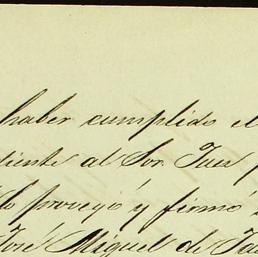 haber cumplido el
diente al Sor. Juez
proveyó y firmó
José Miguel de